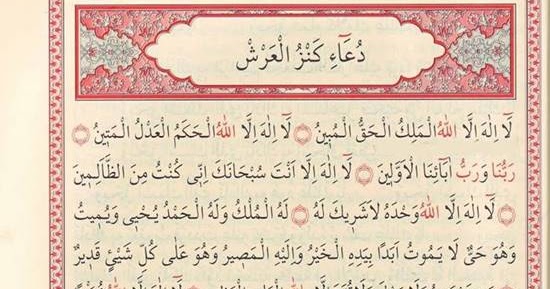 دُعَاءِ كَنْزُ الْعَرْشْ
لَا اِلٰهَ اِلَّا اللهُ الْمَلِكُ الْحَقُّ الْمُبِينُ لَا اِلٰهَ اِلَّا اللهُ الْحَكَمُ الْعَدْلُ الْمَتِينُ
رَبُّنَا وَرَبُّ اٰبَائِنَا الْاَوَّلِينَ لَا اِلٰهَ اِلَّا اَنْتَ سُبْحَانَكَ اِنِّى كُنْتُ مِنَ الظَّالِمِينَ
لَا اِلٰهَ اِلَّا اللهُ وَحْدَهُ لَاشَرِيكَ لَهُ لَهُ الْمُلْكُ وَلَهُ الْحَمْدُ يُحْيِى وَيُمِيتُ
وَهُوَ حَىٌّ لَا يَمُوتُ اَبَدًا بِيَدِهِ الْخَيْرُ وَاِلَيْهِ الْمَصِيرُ وَهُوَ عَلٰى كُلِّ شَيْئٍ قَدِيرٌ